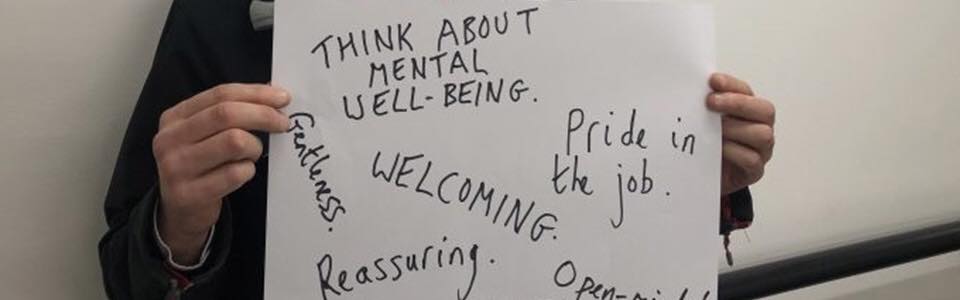 THINK ABOUT
MENTAL
WELL-BEING.
Gentleness.
Pride in
the job.
WELCOMING.
Reassuring.